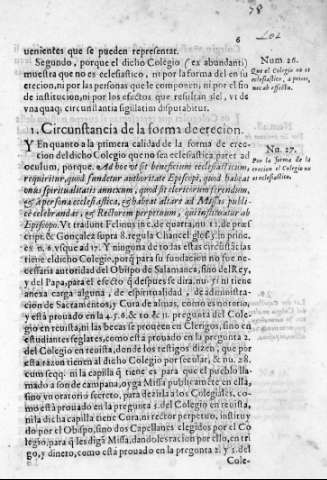 78
6
202
uenientes que se pueden representar.
Segundo, porque el dicho Colegio (ex abundanti)
muestra que no es eclesiastico, ni por la forma del en su
erecion, ni por las personas que le componen, ni por el fin
de institucion, ni por los efectos que resultan del, vt de
vnaquaq; circunstantia sigillatim disputabitur.
Num 26.
Que el Colegio no es
eclesiastico, a priori,
nec ab effectu.
1. Circunstancia de la forma de erecion.
Y En quanto a la primera calidad de la forma de erec-
cion del dicho Colegio que no sea eclesiastica patet ad
oculum, porque. Ad hoc vt sit beneficium ecclesiasticum,
requiritur, quod fundetur authoritate Episcopi, quod habeat
onus spiritualitatis annexum, quod sit clericorum serendum,
& à persona ecclesiastica, & habeat altare ad Missas publi-
cè celebrandas, & Rectorem perpetuum, qui instituatur ab
Episcopo. Vt tradunt Felinus in c. de quarta, nu. 11. de præs-
cript. & Gonzalez supra 8. regula Chancel. glos. 5. in princ.
es n. 6. vsque ad 17. Y ninguna de todas estas circũstãcias
tiene el dicho Colegio, porq̃ para su fundacion no fue ne-
cessaria autoridad del Obispo de Salamanca, sino del Rey,
y del Papa, para el efecto q̃ despues se dira. nu. y ni tiene
anexa carga alguna, de espiritualidad, de administra-
cion de Sacramentos, y Cura de almas, como es notorio,
y està prouado en la 4. 5. 6. & 10 & 11. pregunta del Cole-
gio en reuista, ni las becas se prouèen en Clerigos, sino en
estudiantes seglares, como està prouado en la pregunta 2.
del Colegio en reuista, donde los testigos dizen, que por
esta razon tienen al dicho Colegio por secular, & nu. 28.
cum seqq. ni la capilla q̃ tiene es para que el pueblo lla-
mado a son de campana, oyga Missa publicamẽte en ella,
sino vn oratorio secreto, para dezirla a los Colegiales, co-
mo està prouado en la pregunta 3. del Colegio en reuista,
ni la dicha capilla tiene Cura, ni rector perpetuo, instituy
do por el Obispo, sino dos Capellanes elegidos por el Co
legio, para q̃ les digã Missa, dandoles racion por ello, en tri-
go, y dinero, como està prouado en la pregunta 2. y 3. del
Cole-
Nu. 27.
Por la forma de la
erecion el Colegio no
es eclesiastico.